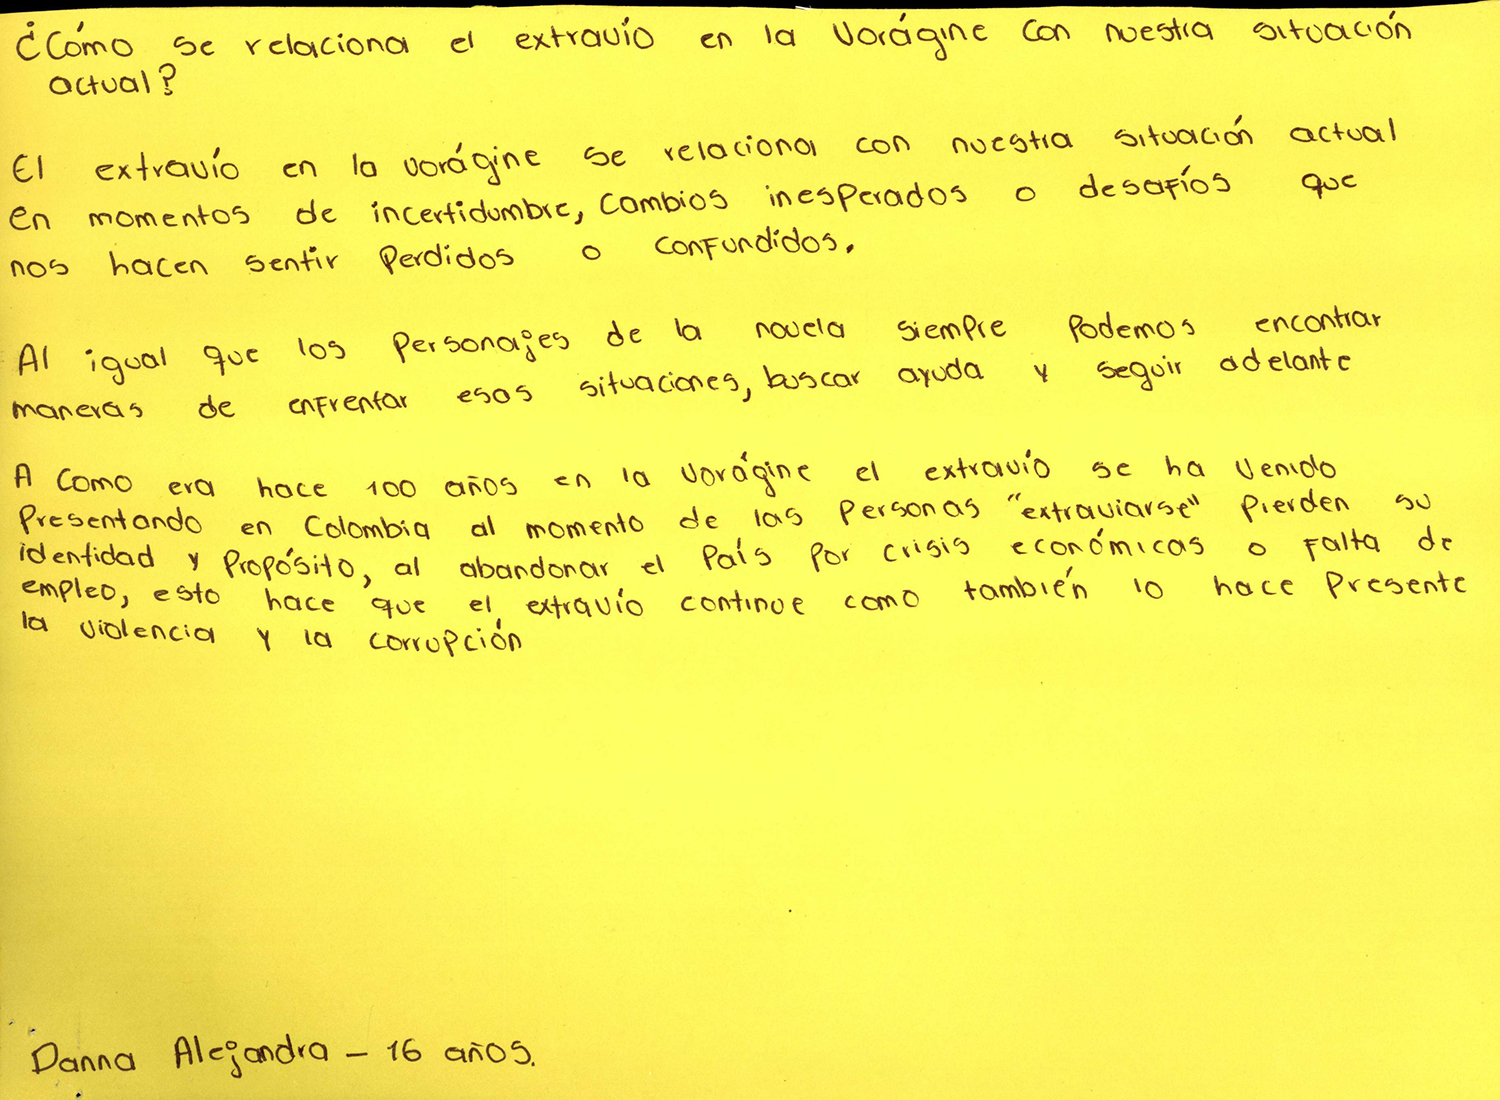 ¿Cómo se relaciona el extravío en la Vorágine con nuestra situación
actual?
El extravío en la vorágine se relaciona con nuestra situación actual
en momentos de incertidumbre, cambios inesperados o desafíos que
nos hacen sentir perdidos o confundidos.
Al igual que los personajes de la novela siempre podemos encontrar
maneras de enfrentar esas situaciones, buscar ayuda y seguir adelante
A como era hace 100 años en la vorágine el extravío se ha venido
presentando en Colombia al momento de las personas "extraviarse" pierden su
identidad y propósito, al abandonar el país por crisis económicas o falta de
empleo, esto hace que el extravío continue como también lo hace presente
la violencia y la corrupción
Danna Alejandra - 16 años.